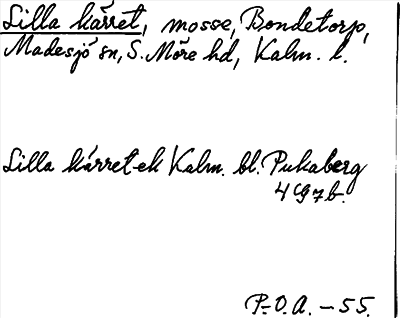 Lilla kärret, mosse, Bondetorp,
Madesjö sn, S. Möre hd, Kalm. l.
Lilla kärret ek Kalm. bl. Pukaberg
4 G 7 b.
P.O.A. - 55.